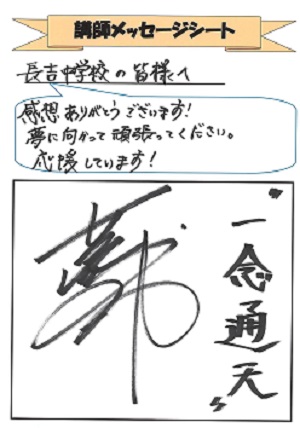 講師メッセージシート
長吉中学校の皆様へ
感想ありがとうございます!
夢に向かって頑張ってください。
応援しています!
"一念通天"